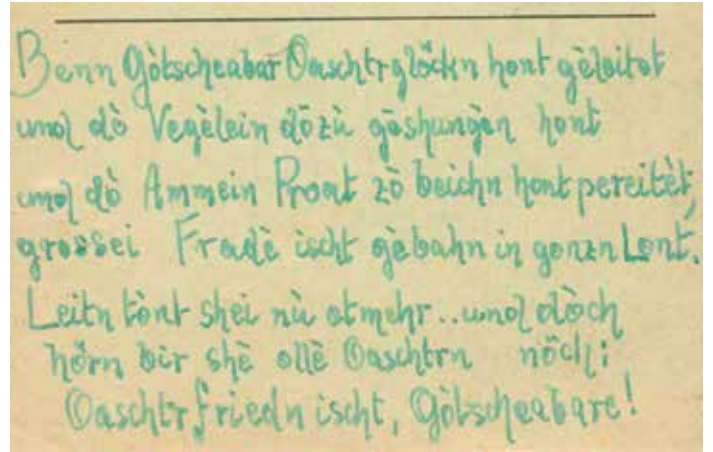 Benn Gòtscheabar Oaschtrglöckn hont gèleitot
und dò Vegèlein dòzù gàshungàn hont
und dò Ammein Proat zò beichn hont pereitèt,
grossei Fradè ischt gèbahn in gonzn Lont.
Leitn tònt shei nù atmehr.. und dòch
hörn bir shè ollè Oaschtrn nöch:
Oaschtrfriedn ischt, Gòtscheabare!